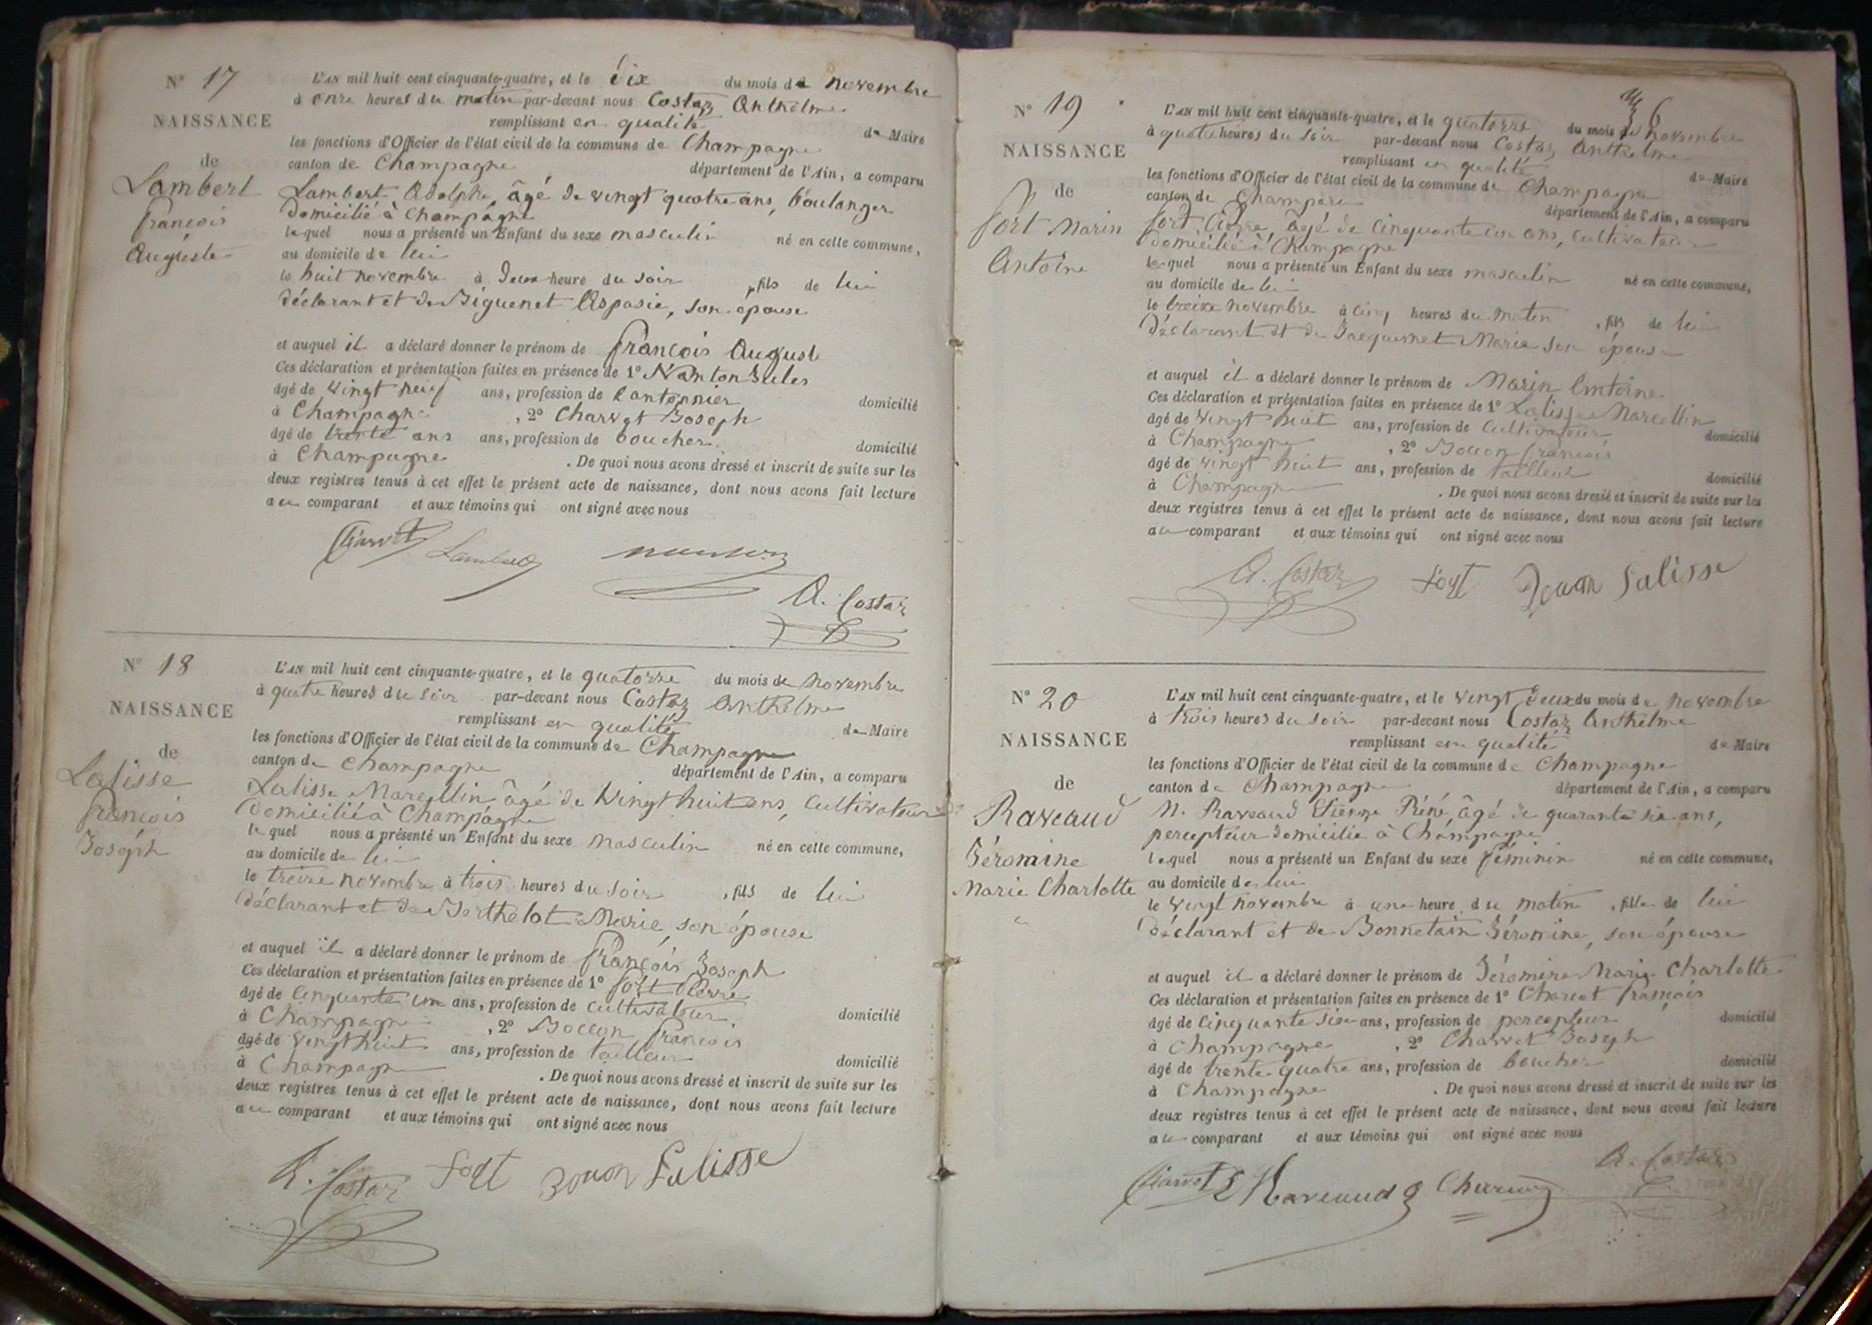 N° 17
NAISSANCE
de
Lambert
francois
Auguste
L'AN mil huit cent cinquante-quatre, et le dix du mois de novembre
à onze heures du matin par-devant nous Costaz Anthelme
remplissant en qualité de Maire
les fonctions d'Officier de l'état civil de la commune de Champagne
canton de Champagne département de l'Ain, a comparu
Lambert Adolphe, âgé de vingt quatre ans, boulanger
domicilié à Champagne
lequel nous a présenté un Enfant du sexe masculin né en cette commune,
au domicile de lui
le huit novembre à deux heure du soir, fils de lui
déclarant et de Biguenet Aspasie, son épouse
et auquel il a déclaré donner le prénom de françois August
Ces déclaration et présentation faites en présence de 1° Nanton Jules
âgé de vingt neuf ans, profession de Cantonnier domicilié
à Champagne, 2° Charvet Joseph
âgé de trente ans ans, profession de boucher domicilié
à Champagne. De quoi nous avons dressé et inscrit de suite sur les
deux registres tenus à cet effet le présent acte de naissance, dont nous avons fait lecture
au comparant et aux témoins qui ont signé avec nous
Charvet Lambert nanton
A. Costaz
N° 18
NAISSANCE
de
Lalisse
francois
Joséph
L'AN mil huit cent cinquante-quatre, et le quatorze du mois de novembre
à quatre heures du soir par-devant nous Costaz Anthelme
remplissant en qualité de Maire
les fonctions d'Officier de l'état civil de la commune de Champagne
canton de Champagne département de l'Ain, a comparu
Lalisse Marcellin, âgé de vingt huit ans, cultivateur
domicilié à Champagne
lequel nous a présenté un Enfant du sexe masculin né en cette commune,
au domicile de lui
le treize novembre à trois heures du soir, fils de lui
déclarant et de Berthelot Marie, son épouse
et auquel il a déclaré donner le prénom de françois Joseph
Ces déclaration et présentation faites en présence de 1° fort Pierre
âgé de cinquante un ans, profession de cultivateur domicilié
à Champagne, 2° Bouon francois
âgé de vingt huit ans, profession de tailleur domicilié
à Champagne. De quoi nous avons dressé et inscrit de suite sur les
deux registres tenus à cet effet le présent acte de naissance, dont nous avons fait lecture
au comparant et aux témoins qui ont signé avec nous
A. Costaz fort Bouon Lalisse
6
N° 19
NAISSANCE
de
fort Marin
Antoine
L'AN mil huit cent cinquante-quatre, et le quatorze du mois de novembre
à quatre heures du soir par-devant nous Costaz Anthelme
remplissant en qualité de Maire
les fonctions d'Officier de l'état civil de la commune de Champagne
canton de Champagne département de l'Ain, a comparu
fort Pierre, âgé de cinquante un ans, cultivateur
domicilié à Champagne
lequel nous a présenté un Enfant du sexe masculin né en cette commune,
au domicile de lui
le treize novembre à cinq heures du matin, fils de lui
déclarant et de Jacquemet Marie son épouse
et auquel il a déclaré donner le prénom de Marin Antoine
Ces déclaration et présentation faites en présence de 1° Lalisse Marcellin
âgé de vingt huit ans, profession de cultivateur domicilié
à Champagne, 2° Bouon francois
âgé de vingt huit ans, profession de tailleur domicilié
à Champagne. De quoi nous avons dressé et inscrit de suite sur les
deux registres tenus à cet effet le présent acte de naissance, dont nous avons fait lecture
au comparant et aux témoins qui ont signé avec nous
A. Costaz fort Bouon Lalisse
N° 20
NAISSANCE
de
Raveaud
Jéromine
Marie Charlotte
L'AN mil huit cent cinquante-quatre, et le vingt deux du mois de novembre
à trois heures du soir par-devant nous Costaz Anthelme
remplissant en qualité de Maire
les fonctions d'Officier de l'état civil de la commune de Champagne
canton de Champagne département de l'Ain, a comparu
M. Raveaud Etienne Réné, âgé de quarante six ans,
percepteur domicilié à Champagne
lequel nous a présenté un Enfant du sexe féminin né en cette commune,
au domicile de lui
le vingt novembre à une heure du matin, fille de lui
déclarant et de Bonnetain Jéromine, son épouse
et auquel il a déclaré donner le prénom de Jéromine Marie Charlotte
Ces déclaration et présentation faites en présence de 1° Charcot françois
âgé de cinquante six ans, profession de percepteur domicilié
à Champagne, 2° Charvet Joseph
âgé de trente quatre ans, profession de boucher domicilié
à Champagne. De quoi nous avons dressé et inscrit de suite sur les
deux registres tenus à cet effet le présent acte de naissance, dont nous avons fait lecture
au comparant et aux témoins qui ont signé avec nous
A. Costaz
Charvet E Raveaud